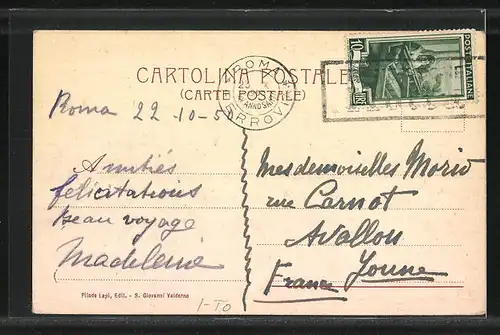 CARTOLINA POSTALE
(CARTE POSTALE)
ROMA
FERROVIA
POSTE ITALIANE
10
Roma 22-10-50
Amitiés
félicitations
beau voyage
Madeleine
Mesdemoiselles Morio
rue Carnot
Avallon
France Yonne
Pilade Lapi, Edit. - S. Giovanni Valdarno
1-TO